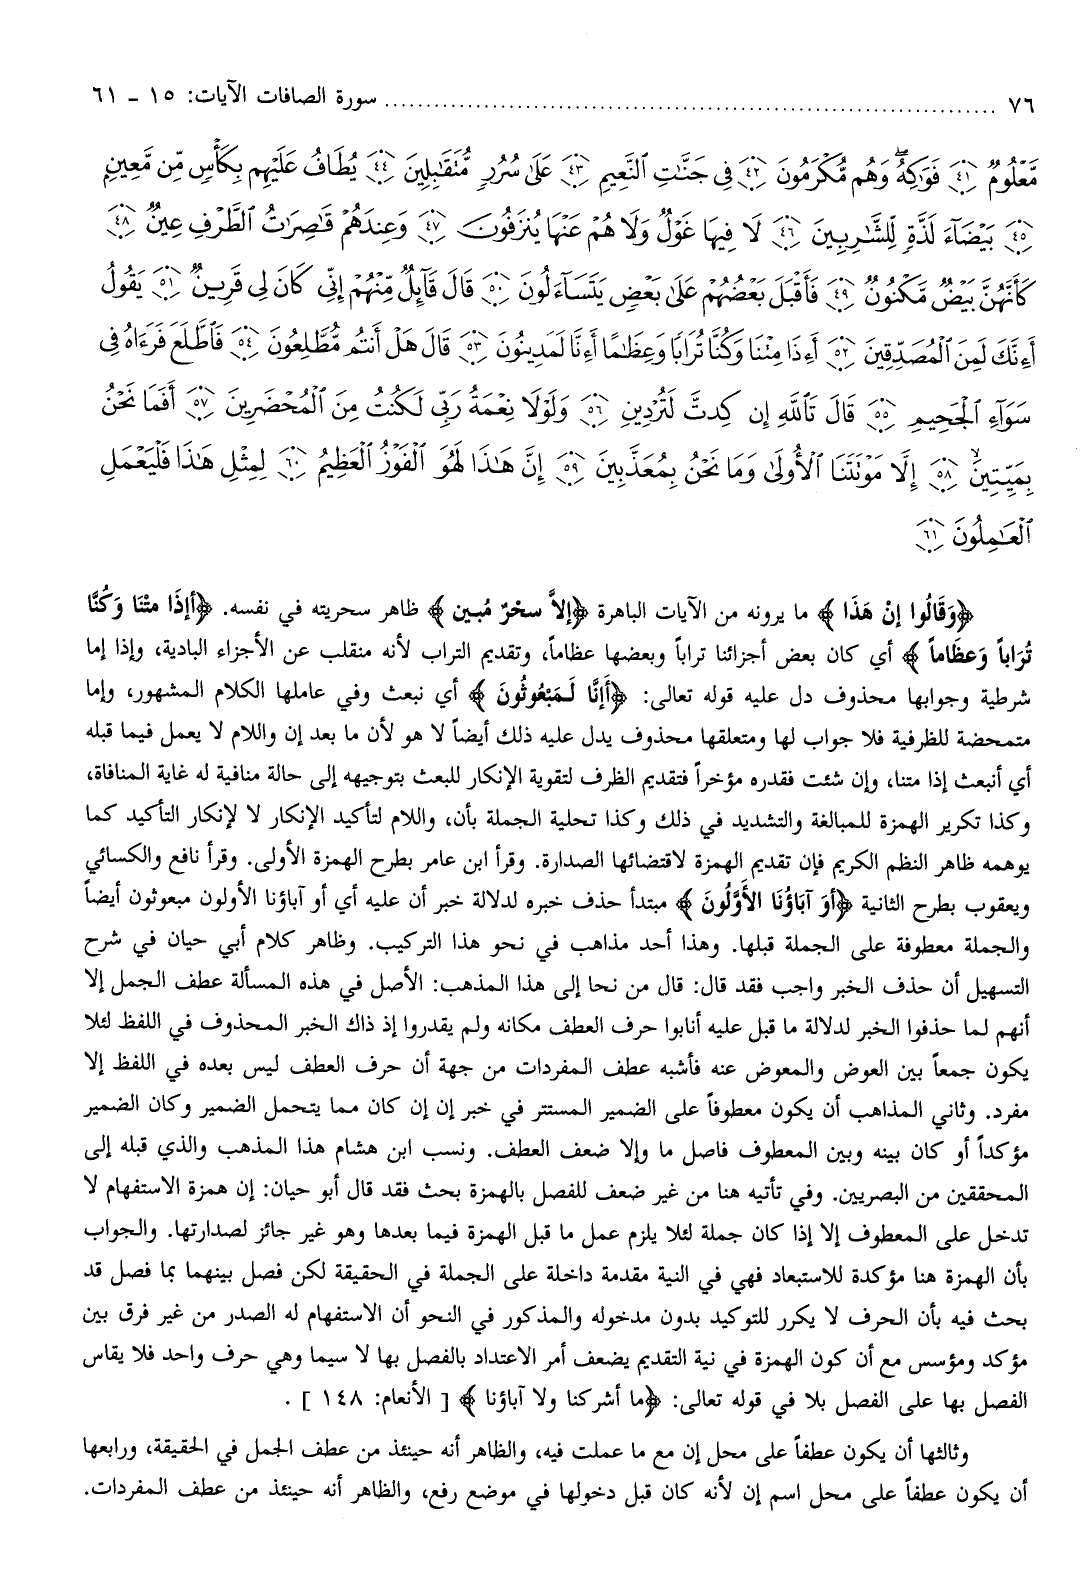 ٧٦ ........................................................................ سورة الصافات الآيات: ١٥ - ٦١
مَّعْلُومٌ ﴿٤١﴾ فَوَٰكِهُ وَهُم مُّكْرَمُونَ ﴿٤٢﴾ فِى جَنَّٰتِ ٱلنَّعِيمِ ﴿٤٣﴾ عَلَىٰ سُرُرٍ مُّتَقَٰبِلِينَ ﴿٤٤﴾ يُطَافُ عَلَيْهِم بِكَأْسٍ مِّن مَّعِينٍ
﴿٤٥﴾ بَيْضَآءَ لَذَّةٍ لِّلشَّٰرِبِينَ ﴿٤٦﴾ لَا فِيهَا غَوْلٌ وَلَا هُمْ عَنْهَا يُنزَفُونَ ﴿٤٧﴾ وَعِندَهُمْ قَٰصِرَٰتُ ٱلطَّرْفِ عِينٌ ﴿٤٨﴾
كَأَنَّهُنَّ بَيْضٌ مَّكْنُونٌ ﴿٤٩﴾ فَأَقْبَلَ بَعْضُهُمْ عَلَىٰ بَعْضٍ يَتَسَآءَلُونَ ﴿٥٠﴾ قَالَ قَآئِلٌ مِّنْهُمْ إِنِّى كَانَ لِى قَرِينٌ ﴿٥١﴾ يَقُولُ
أَءِنَّكَ لَمِنَ ٱلْمُصَدِّقِينَ ﴿٥٢﴾ أَءِذَا مِتْنَا وَكُنَّا تُرَابًا وَعِظَٰمًا أَءِنَّا لَمَدِينُونَ ﴿٥٣﴾ قَالَ هَلْ أَنتُم مُّطَّلِعُونَ ﴿٥٤﴾ فَٱطَّلَعَ فَرَءَاهُ فِى
سَوَآءِ ٱلْجَحِيمِ ﴿٥٥﴾ قَالَ تَٱللَّهِ إِن كِدتَّ لَتُرْدِينِ ﴿٥٦﴾ وَلَوْلَا نِعْمَةُ رَبِّى لَكُنتُ مِنَ ٱلْمُحْضَرِينَ ﴿٥٧﴾ أَفَمَا نَحْنُ
بِمَيِّتِينَ ﴿٥٨﴾ إِلَّا مَوْتَتَنَا ٱلْأُولَىٰ وَمَا نَحْنُ بِمُعَذَّبِينَ ﴿٥٩﴾ إِنَّ هَٰذَا لَهُوَ ٱلْفَوْزُ ٱلْعَظِيمُ ﴿٦٠﴾ لِمِثْلِ هَٰذَا فَلْيَعْمَلِ
ٱلْعَٰمِلُونَ ﴿٦١﴾
﴿وَقَالُوا إِنْ هَذَا ﴾ ما يرونه من الآيات الباهرة ﴿إلاَّ سحْرٌ مُبين ﴾ ظاهر سحريته في نفسه. ﴿أإذَا متْنَا وَكُنَّا
تُرَاباً وَعظَاماً ﴾ أي كان بعض أجزائنا تراباً وبعضها عظاماً، وتقديم التراب لأنه منقلب عن الأجزاء البادية، وإذا إما
شرطية وجوابها محذوف دل عليه قوله تعالى: ﴿أَإنَّا لَمَبْعُوثُونَ ﴾ أي نبعث وفي عاملها الكلام المشهور، وإما
متمحضة للظرفية فلا جواب لها ومتعلقها محذوف يدل عليه ذلك أيضاً لا هو لأن ما بعد إن واللام لا يعمل فيما قبله
أي أنبعث إذا متنا، وإن شئت فقدره مؤخراً فتقديم الظرف لتقوية الإنكار للبعث بتوجيهه إلى حالة منافية له غاية المنافاة،
وكذا تكرير الهمزة للمبالغة والتشديد في ذلك وكذا تحلية الجملة بأن، واللام لتأكيد الإنكار لا لإنكار التأكيد كما
يوهمه ظاهر النظم الكريم فإن تقديم الهمزة لاقتضائها الصدارة. وقرأ ابن عامر بطرح الهمزة الأولى. وقرأ نافع والكسائي
ويعقوب بطرح الثانية ﴿أوَ آبَاؤُنَا الأَوَّلُونَ ﴾ مبتدأ حذف خبره لدلالة خبر أن عليه أي أو آباؤنا الأولون مبعوثون أيضاً
والجملة معطوفة على الجملة قبلها. وهذا أحد مذاهب في نحو هذا التركيب. وظاهر كلام أبي حيان في شرح
التسهيل أن حذف الخبر واجب فقد قال: قال من نحا إلى هذا المذهب: الأصل في هذه المسألة عطف الجمل إلا
أنهم لما حذفوا الخبر لدلالة ما قبل عليه أنابوا حرف العطف مكانه ولم يقدروا إذ ذاك الخبر المحذوف في اللفظ لئلا
يكون جمعاً بين العوض والمعوض عنه فأشبه عطف المفردات من جهة أن حرف العطف ليس بعده في اللفظ إلا
مفرد. وثاني المذاهب أن يكون معطوفاً على الضمير المستتر في خبر إن إن كان مما يتحمل الضمير وكان الضمير
مؤكداً أو كان بينه وبين المعطوف فاصل ما وإلا ضعف العطف. ونسب ابن هشام هذا المذهب والذي قبله إلى
المحققين من البصريين. وفي تأتيه هنا من غير ضعف للفصل بالهمزة بحث فقد قال أبو حيان: إن همزة الاستفهام لا
تدخل على المعطوف إلا إذا كان جملة لئلا يلزم عمل ما قبل الهمزة فيما بعدها وهو غير جائز لصدارتها. والجواب
بأن الهمزة هنا مؤكدة للاستبعاد فهي في النية مقدمة داخلة على الجملة في الحقيقة لكن فصل بينهما بما فصل قد
بحث فيه بأن الحرف لا يكرر للتوكيد بدون مدخوله والمذكور في النحو أن الاستفهام له الصدر من غير فرق بين
مؤكد ومؤسس مع أن كون الهمزة في نية التقديم يضعف أمر الاعتداد بالفصل بها لا سيما وهي حرف واحد فلا يقاس
الفصل بها على الفصل بلا في قوله تعالى: ﴿ما أشركنا ولا آباؤنا ﴾ [ الأنعام: ١٤٨ ] .
وثالثها أن يكون عطفاً على محل إن مع ما عملت فيه، والظاهر أنه حينئذ من عطف الجمل في الحقيقة، ورابعها
أن يكون عطفاً على محل اسم إن لأنه كان قبل دخولها في موضع رفع، والظاهر أنه حينئذ من عطف المفردات.